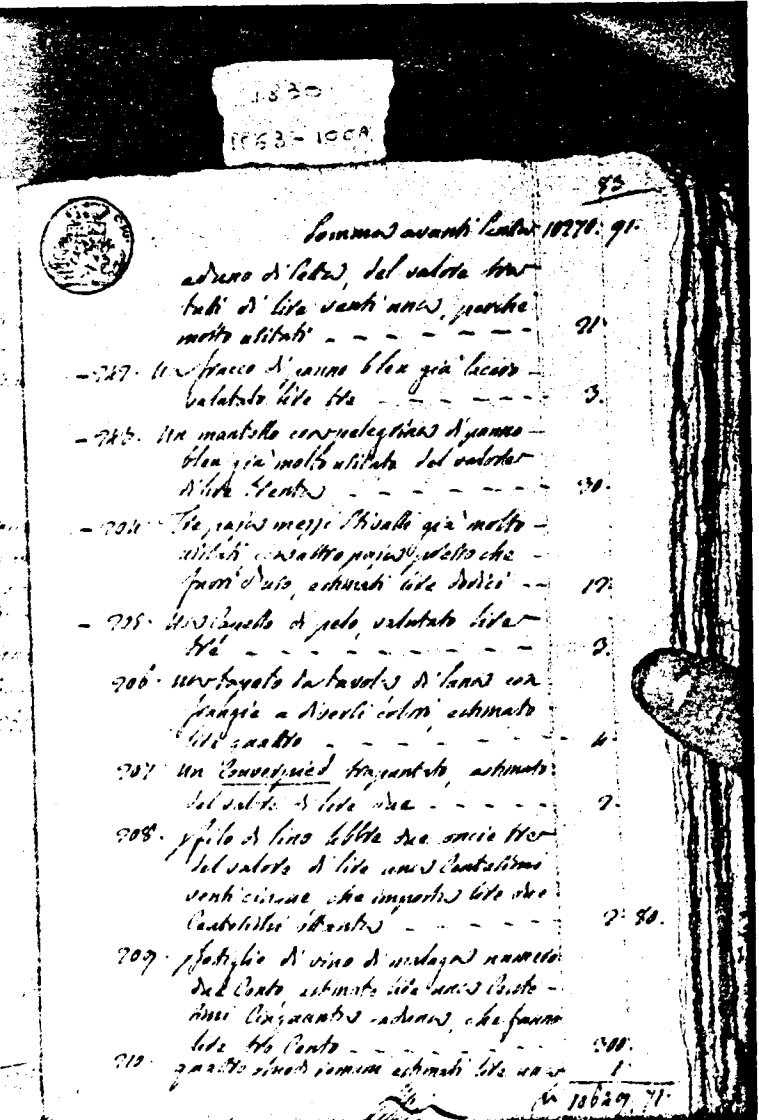 1830
83
Somma avanti 10270: 91.
di seta, del valore
di lire vent'una, perché
molto usitati 21
Un fracco di panno bleu già lacero
valutato lire tre 3.
Un mantello con pelegrina di panno
bleu già molto usitato del valore
di lire trenta 30.
204. Tre paja mezzi Stivalli già molto
usitati con altro pajo che
fuori d'uso, estimati lire dodici 12.
205. di pelo, valutato lire
tré 3.
206. un tapeto da tavola di lana con
frangia a diversi colori estimato
lire quattro 4.
207. Un Couvrepied trapuntato, estimato
del valore di lire due 2.
208. filo di lino libbre due oncie tre
del valore di lire una Centesimi
venticinque, che importa lire due
Centesimi ottanta 2. 80.
209. di vino di malaga numero
due Cento estimate lire una Cente-
simi Cinquanta caduna, che fanno
lire tre Cento 300.
210. quattro comuni estimati lire una 1.
10629. 71.